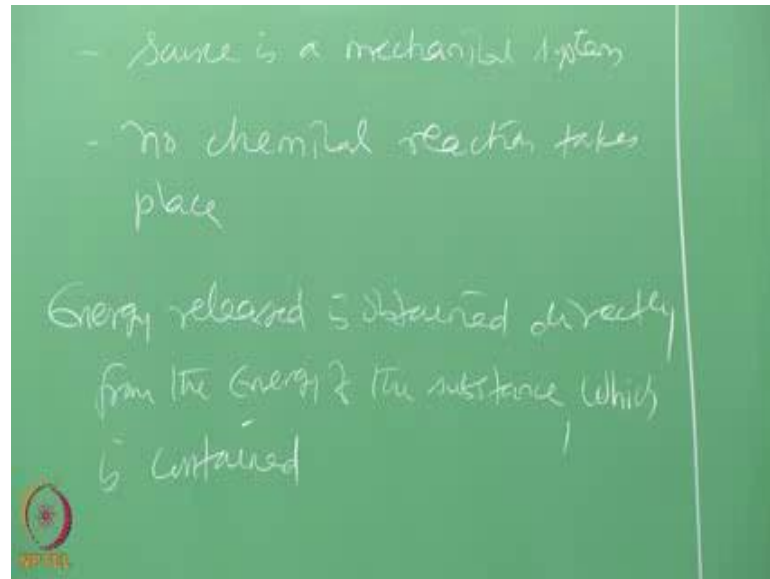 - Source is a mechanical system
- no chemical reaction takes
place
Energy released is obtained directly
from the Energy of the substance which
is contained
NPTEL